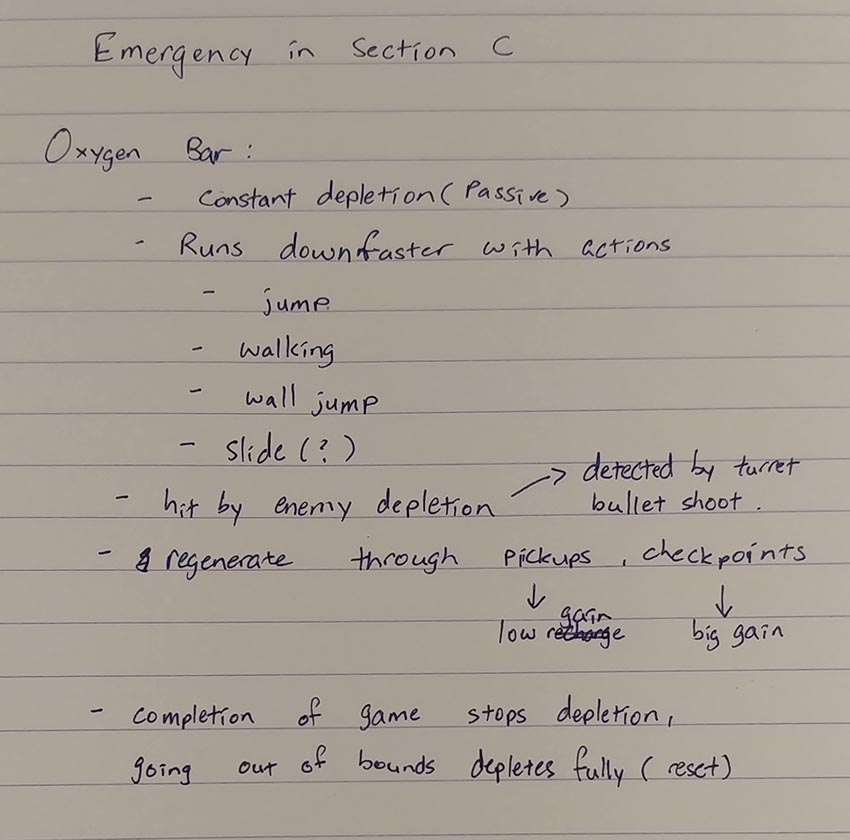 Emergency in Section C
Oxygen Bar :
- Constant depletion (Passive)
- Runs down faster with actions
- jump
- walking
- wall jump
- slide (?)
- hit by enemy depletion → detected by turret
bullet shoot.
- regenerate through pickups , checkpoints
↓ ↓
gain
low recharge big gain
- completion of game stops depletion,
going out of bounds depletes fully ( reset)